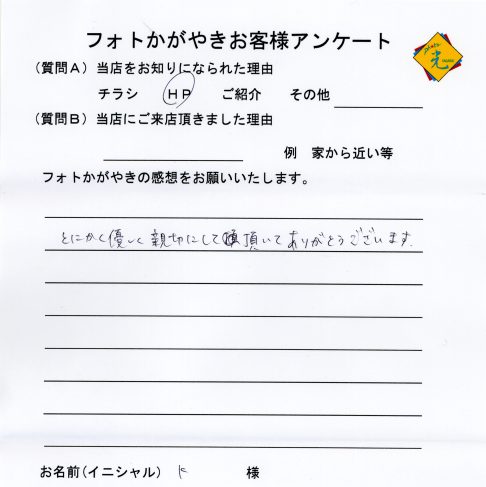 フォトかがやきお客様アンケート
光
(質問A)当店をお知りになられた理由
チラシ HP ご紹介 その他
(質問B)当店にご来店頂きました理由
例 家から近い等
フォトかがやきの感想をお願いいたします。
とにかく優しく親切にして頂いてありがとうございます.
お名前(イニシャル) K 様